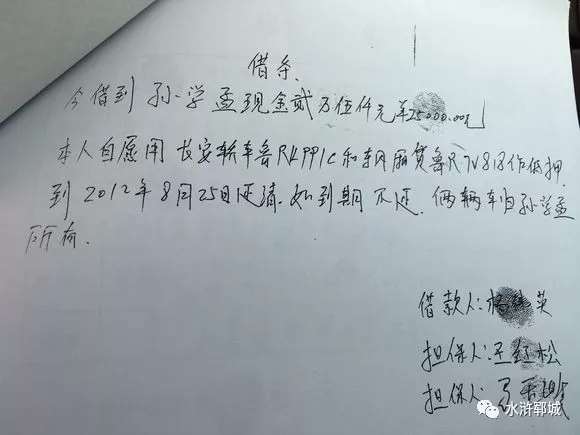 借条
今借到 孙学孟现金贰万伍仟元 ¥25000.00元
本人自愿用 长安轿车鲁RKPP1C和 鲁R7V818作低押.
到 2012年8月25日还清.如到期不还.俩辆车归孙学孟
所有.
借款人: 英
担保人: 松
担保人:
水浒郓城